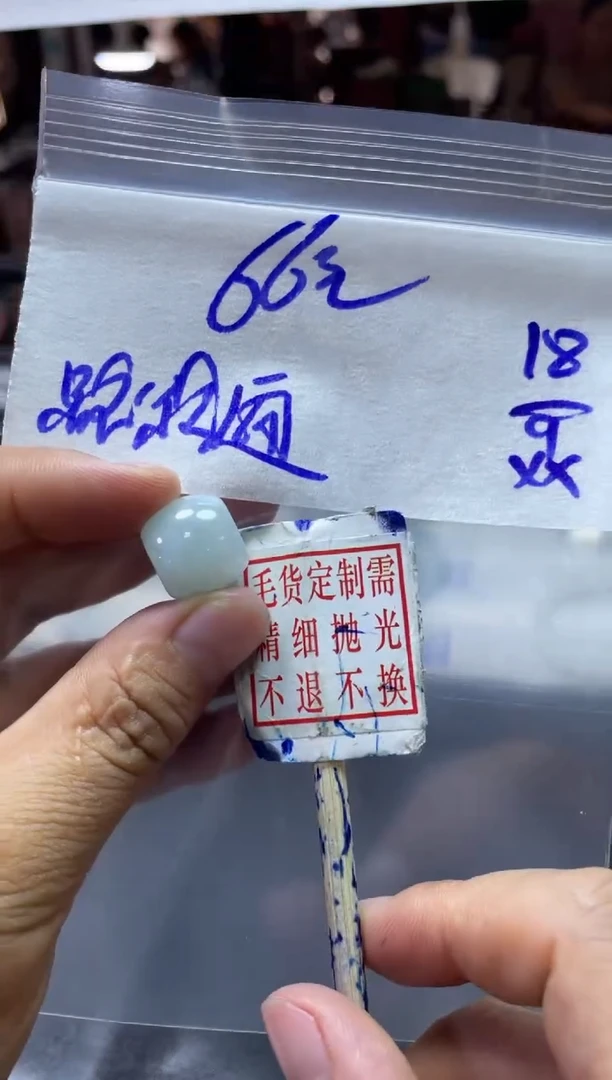 66元
18
9
xx
毛货定制需
精细抛光
不退不换